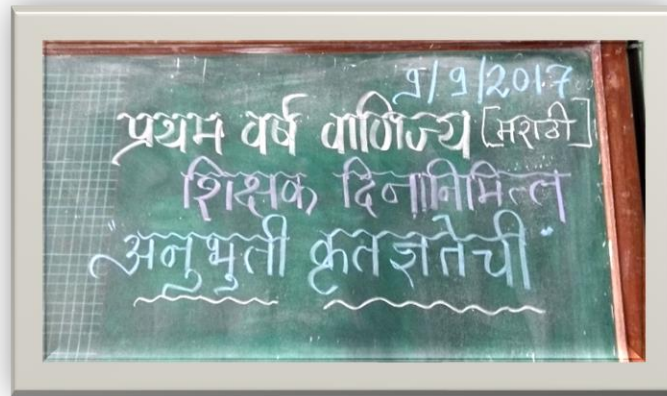 9/9/2017
प्रथम वर्ष वाणिज्य [मराठी]
शिक्षक दिनानिमित्त
"अनुभुती कृतज्ञतेची"